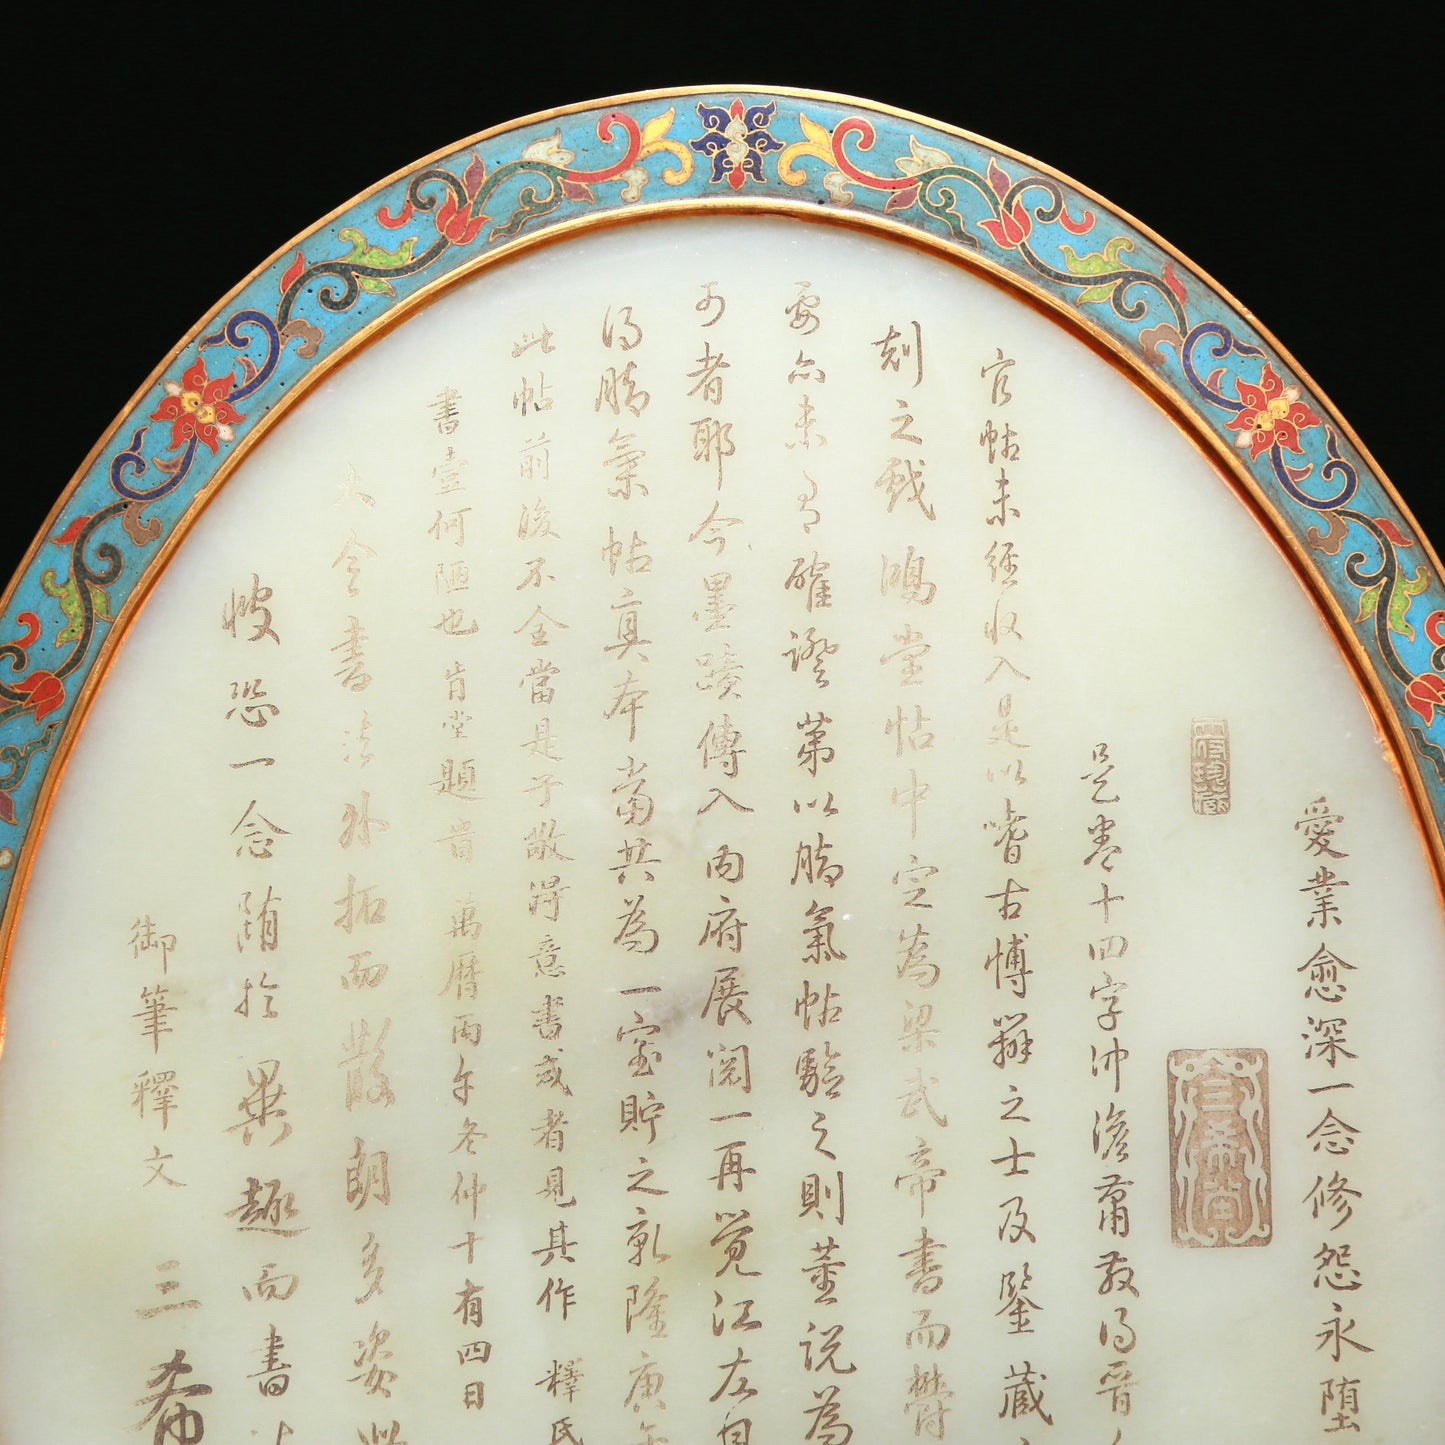 愛業愈深一念修怨永墮
三希堂
是卷十四字沖澹蕭散得晉
官帖未經收入是以嗜古博辨之士及鑒藏
刻之戲鴻堂帖中定為梁武帝書而欝
要亦未有確證第以腦氣帖驗之則董說為
可者耶今墨蹟傳入內府展閱一再覺江左自
得腦氣帖真本當共為一室貯之乾隆庚午
此帖前後不全當是子敬得意書或者見其作 釋氏
書壹何陋也肯堂題 萬曆丙午冬仲十有四日
大令書法外拓而散朗多姿此
恔恐一念隨於異趣而書法
御筆釋文 三希